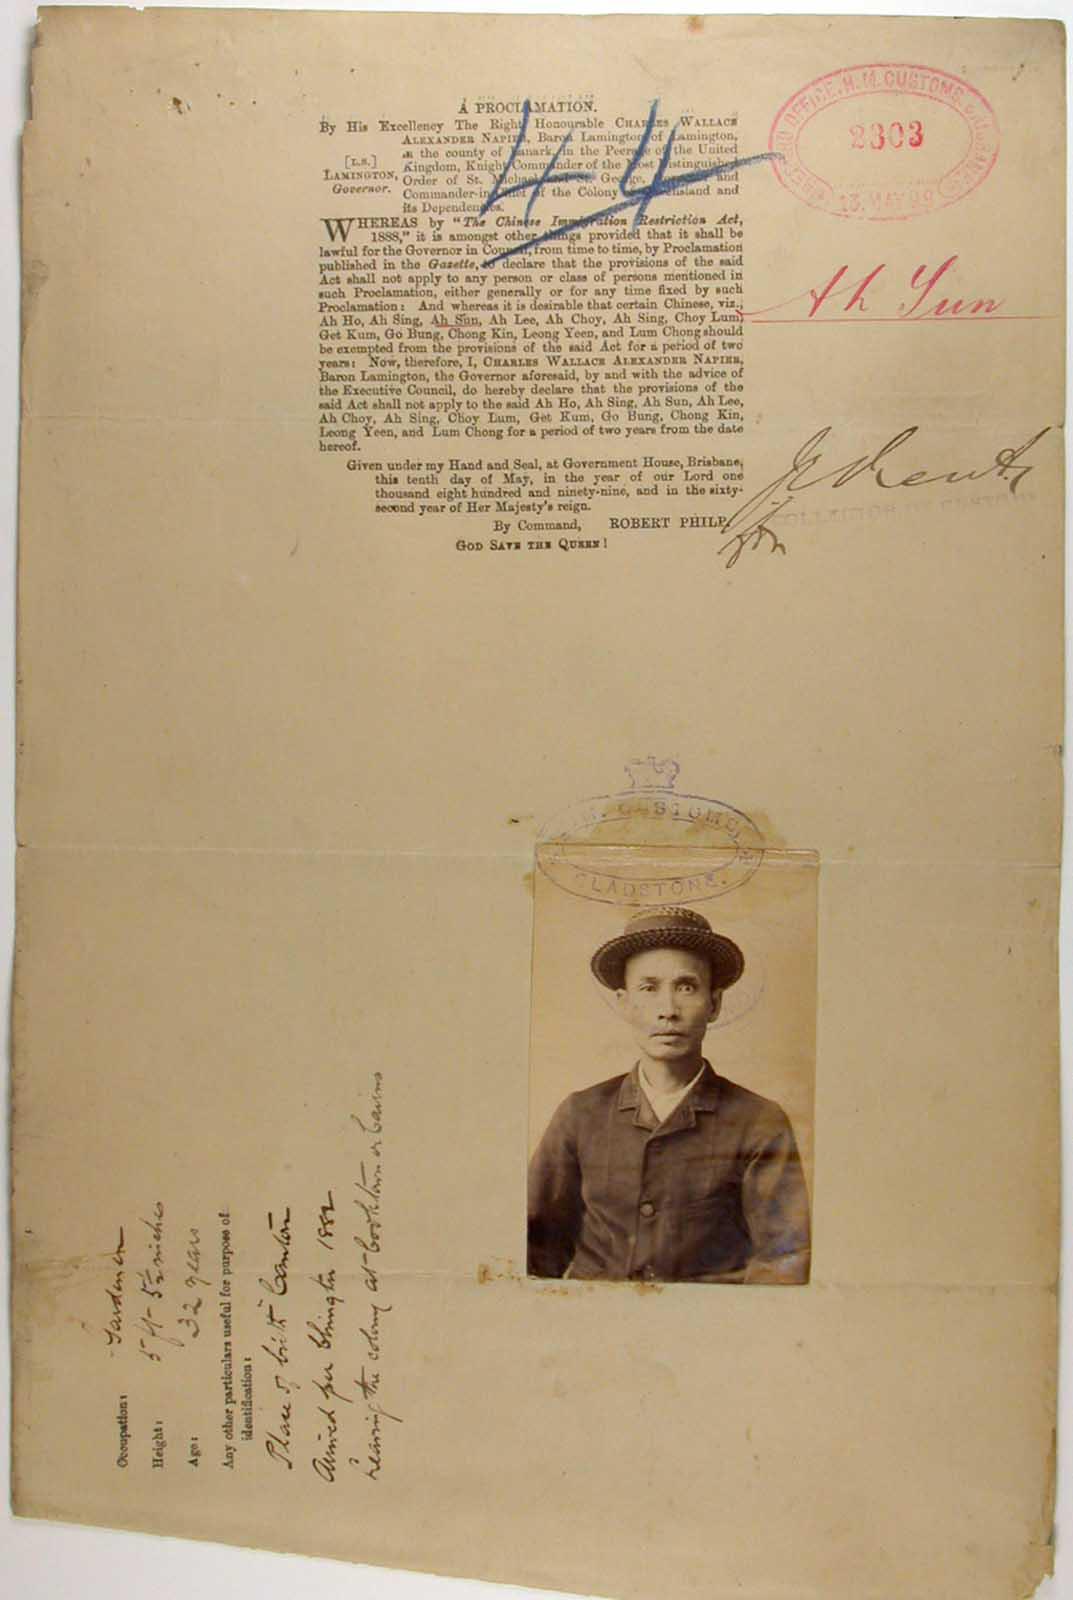 A PROCLAMATION.
By His Excellency The Right Honourable CHARLES WALLACE
ALEXANDER NAPIER, Baron Lamington, of Lamington,
in the county of Lanark, in the Peerage of the United
Kingdom, Knight Commander of the Most Distinguished
Order of St. Michael and St. George, Governor and
Commander-in-Chief of the Colony of Queensland and
its Dependencies.
[L.S.]
LAMINGTON,
Governor.
WHEREAS by "The Chinese Immigration Restriction Act,
1888," it is amongst other things provided that it shall be
lawful for the Governor in Council, from time to time, by Proclamation
published in the Gazette, to declare that the provisions of the said
Act shall not apply to any person or class of persons mentioned in
such Proclamation, either generally or for any time fixed by such
Proclamation: And whereas it is desirable that certain Chinese, viz.,
Ah Ho, Ah Sing, Ah Sun, Ah Lee, Ah Choy, Ah Sing, Choy Lum,
Get Kum, Go Bung, Chong Kin, Leong Yeen, and Lum Chong should
be exempted from the provisions of the said Act for a period of two
years: Now, therefore, I, CHARLES WALLACE ALEXANDER NAPIER,
Baron Lamington, the Governor aforesaid, by and with the advice of
the Executive Council, do hereby declare that the provisions of the
said Act shall not apply to the said Ah Ho, Ah Sing, Ah Sun, Ah Lee,
Ah Choy, Ah Sing, Choy Lum, Get Kum, Go Bung, Chong Kin,
Leong Yeen, and Lum Chong for a period of two years from the date
hereof.
Given under my Hand and Seal, at Government House, Brisbane,
this tenth day of May, in the year of our Lord one
thousand eight hundred and ninety-nine, and in the sixty-
second year of Her Majesty's reign.
By Command, ROBERT PHILP.
GOD SAVE THE QUEEN!
44
RECORD OFFICE. H.M. CUSTOMS. BRISBANE
2303
13. MAY 99
Ah Sun
COLLECTOR OF CUSTOMS
H.M. CUSTOMS,
GLADSTONE.
Occupation: Gardener
Height: 5 ft 5½ inches
Age: 32 years
Any other particulars useful for purpose of
identification:
Place of birth Canton
Arrived per Chingtu 1882
Leaving the colony at Cooktown or Cairns